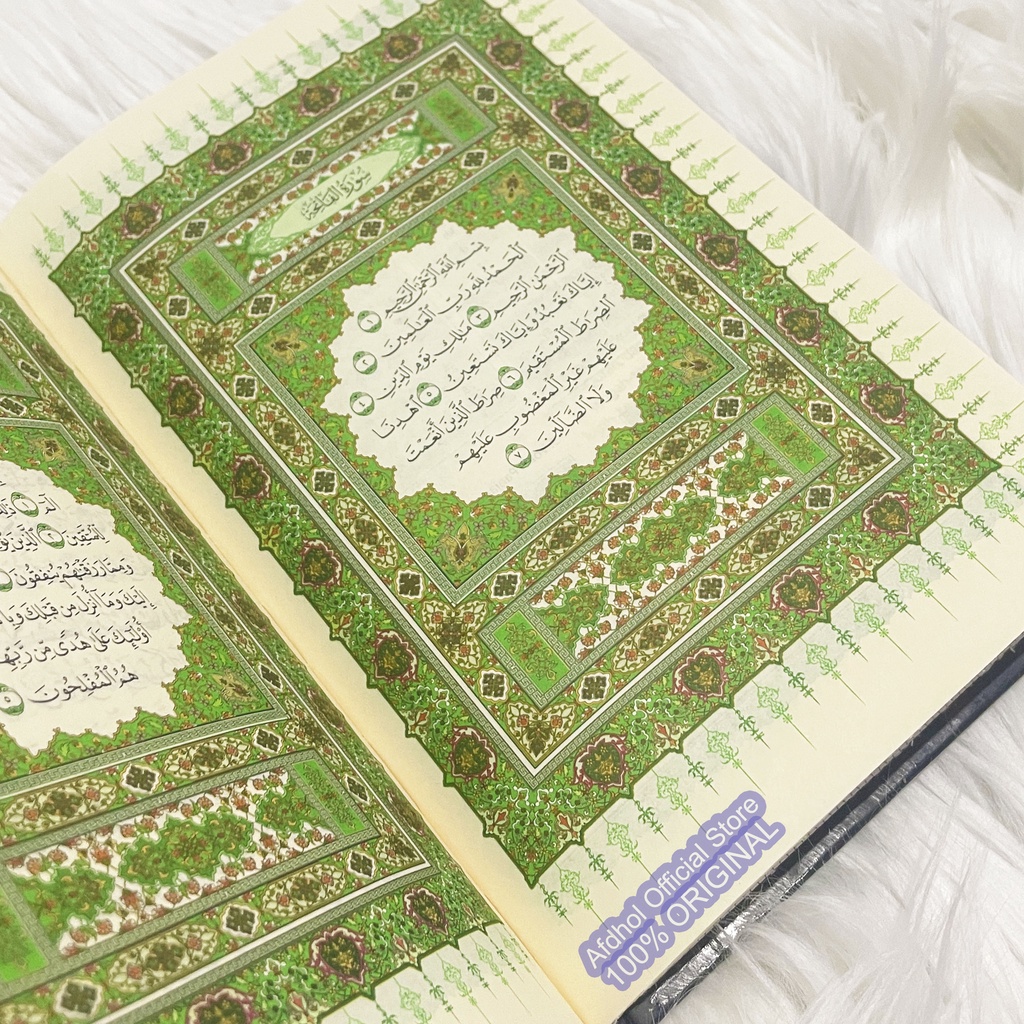 سُورَةُ الْفَاتِحَةِ
بِسْمِ اللَّهِ الرَّحْمَٰنِ الرَّحِيمِ ١
الْحَمْدُ لِلَّهِ رَبِّ الْعَالَمِينَ ٢
الرَّحْمَٰنِ الرَّحِيمِ ٣ مَالِكِ يَوْمِ الدِّينِ ٤
إِيَّاكَ نَعْبُدُ وَإِيَّاكَ نَسْتَعِينُ ٥ اهْدِنَا
الصِّرَاطَ الْمُسْتَقِيمَ ٦ صِرَاطَ الَّذِينَ أَنْعَمْتَ
عَلَيْهِمْ غَيْرِ الْمَغْضُوبِ عَلَيْهِمْ
وَلَا الضَّالِّينَ ٧
الٓمٓ ١
لِلْمُتَّقِينَ ٢ الَّذِينَ
وَمِمَّا رَزَقْنَاهُمْ يُنْفِقُونَ
إِلَيْكَ وَمَا أُنْزِلَ مِنْ قَبْلِكَ
أُولَٰئِكَ عَلَىٰ هُدًى مِنْ رَبِّهِمْ
هُمُ الْمُفْلِحُونَ ٥
Afdhol Official Store
100% ORIGINAL